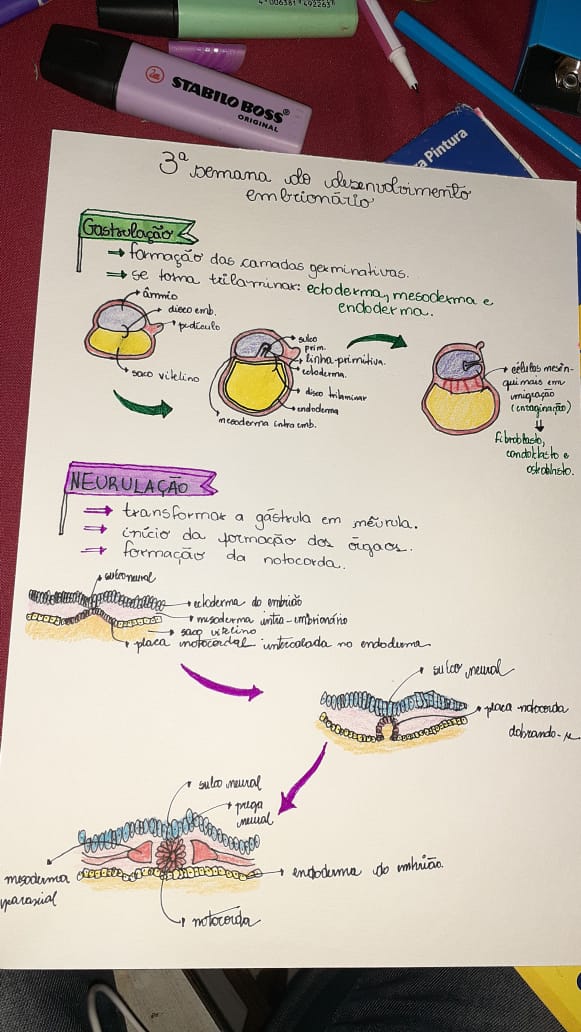 4 006381 492263
STABILO BOSS®
ORIGINAL
a Pintura
3ª semana do desenvolvimento
embrionário
Gastrulação
→ formação das camadas germinativas.
→ se torna trilaminar: ectoderma, mesoderma e
endoderma.
âmnio
disco emb.
pedículo
saco vitelino
sulco
prim.
linha primitiva.
ectoderma.
disco trilaminar
endoderma
mesoderma intra emb.
células mesên-
quimais em
imigração
(invaginação)
Fibroblasto,
condoblasto e
osteoblasto.
NEURULAÇÃO
→ transformar a gástrula em nêurula.
→ início da formação dos órgaos.
→ formação da notocorda.
sulco neural
ectoderma do embrião
mesoderma intra-embrionário
saco vitelino
placa notocordal intercalada no endoderma
sulco neural
placa notocorda
dobrando-se
sulco neural
prega
neural
mesoderma
paraxial
endoderma do embrião.
notocorda